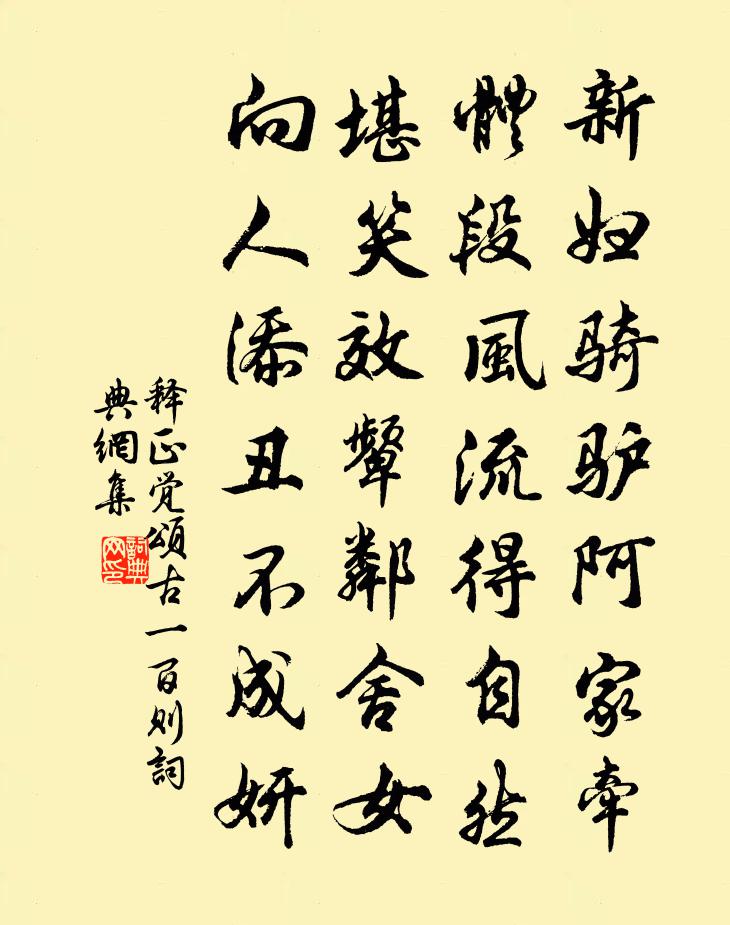 新妇骑驴阿家牵
體段風流得自然
堪笑效颦鄰舍女
向人添丑不成妍
释正觉頌古一百则詞
典網集
詞典
网印